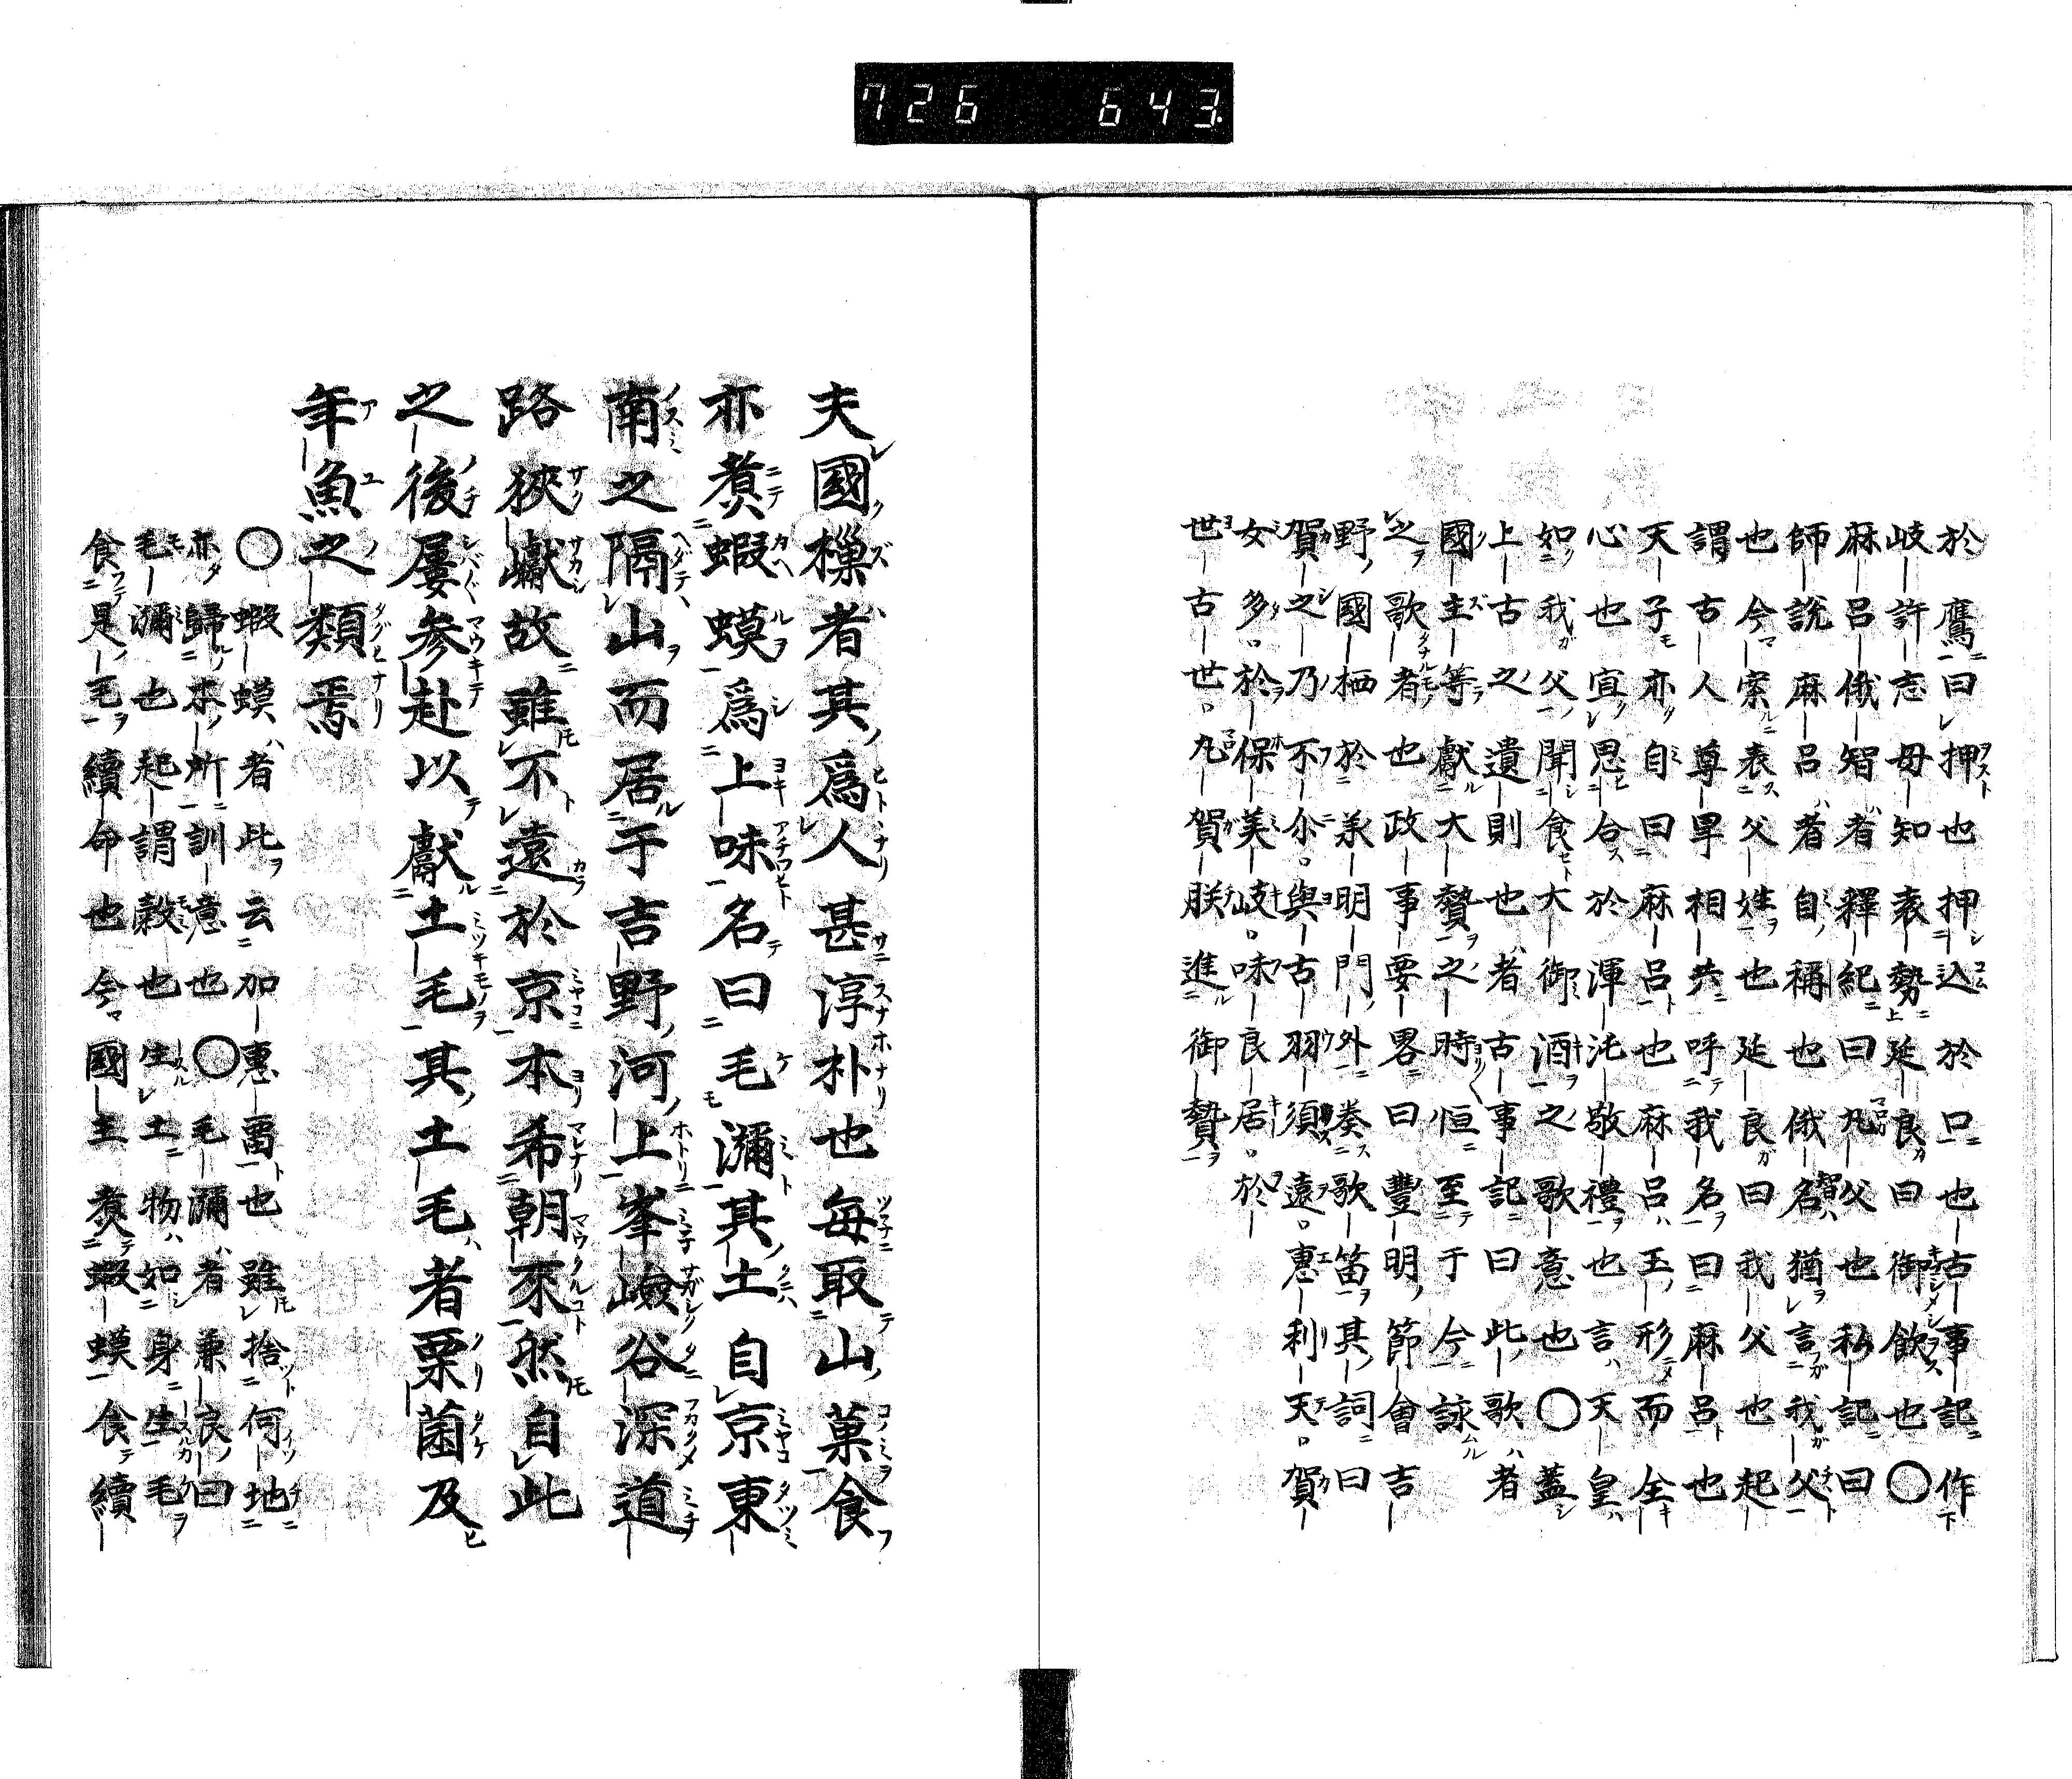 726 643
於鷹曰押也押込於口也古事記作
岐許志毋知袁勢延良曰御飲也〇
麻呂俄智者釋紀曰丸父也私記曰
師説麻呂者自稱也俄名猶言我父
也今案表父姓也延良曰我父也起
謂古人尊卑相共呼我名曰麻呂也
天子亦自曰麻呂也麻呂玉形而全
心也宜思合於渾沌敬禮也言天皇
如我父聞食大御酒之歌意也〇蓋
上古之遺則也者古事記曰此歌者
國主等獻大贄之時恒至于今詠
之歌者也政事要畧曰豐明節會吉
野國栖於承明門外奏歌笛其詞曰
賀之乃不尒與古羽須遠惠利天賀
女多於保美岐味良居於
世古世丸賀朕進御贄
夫國樔者其爲人甚淳朴也毎取山菓食
亦煮蝦蟆爲上味名曰毛瀰其土自京東
南之隔山而居于吉野河上峯嶮谷深道
路狹巘故雖不遠於京本希朝來然自此
之後屢參赴以獻土毛其土毛者栗菌及
年魚之類焉
〇蝦蟆者此云加惠畱也雖捨何地
亦歸本所訓意也〇毛瀰者兼良曰
毛瀰也起謂穀也生土物如身生毛
食是毛續命也今國主煮蝦蟆食續